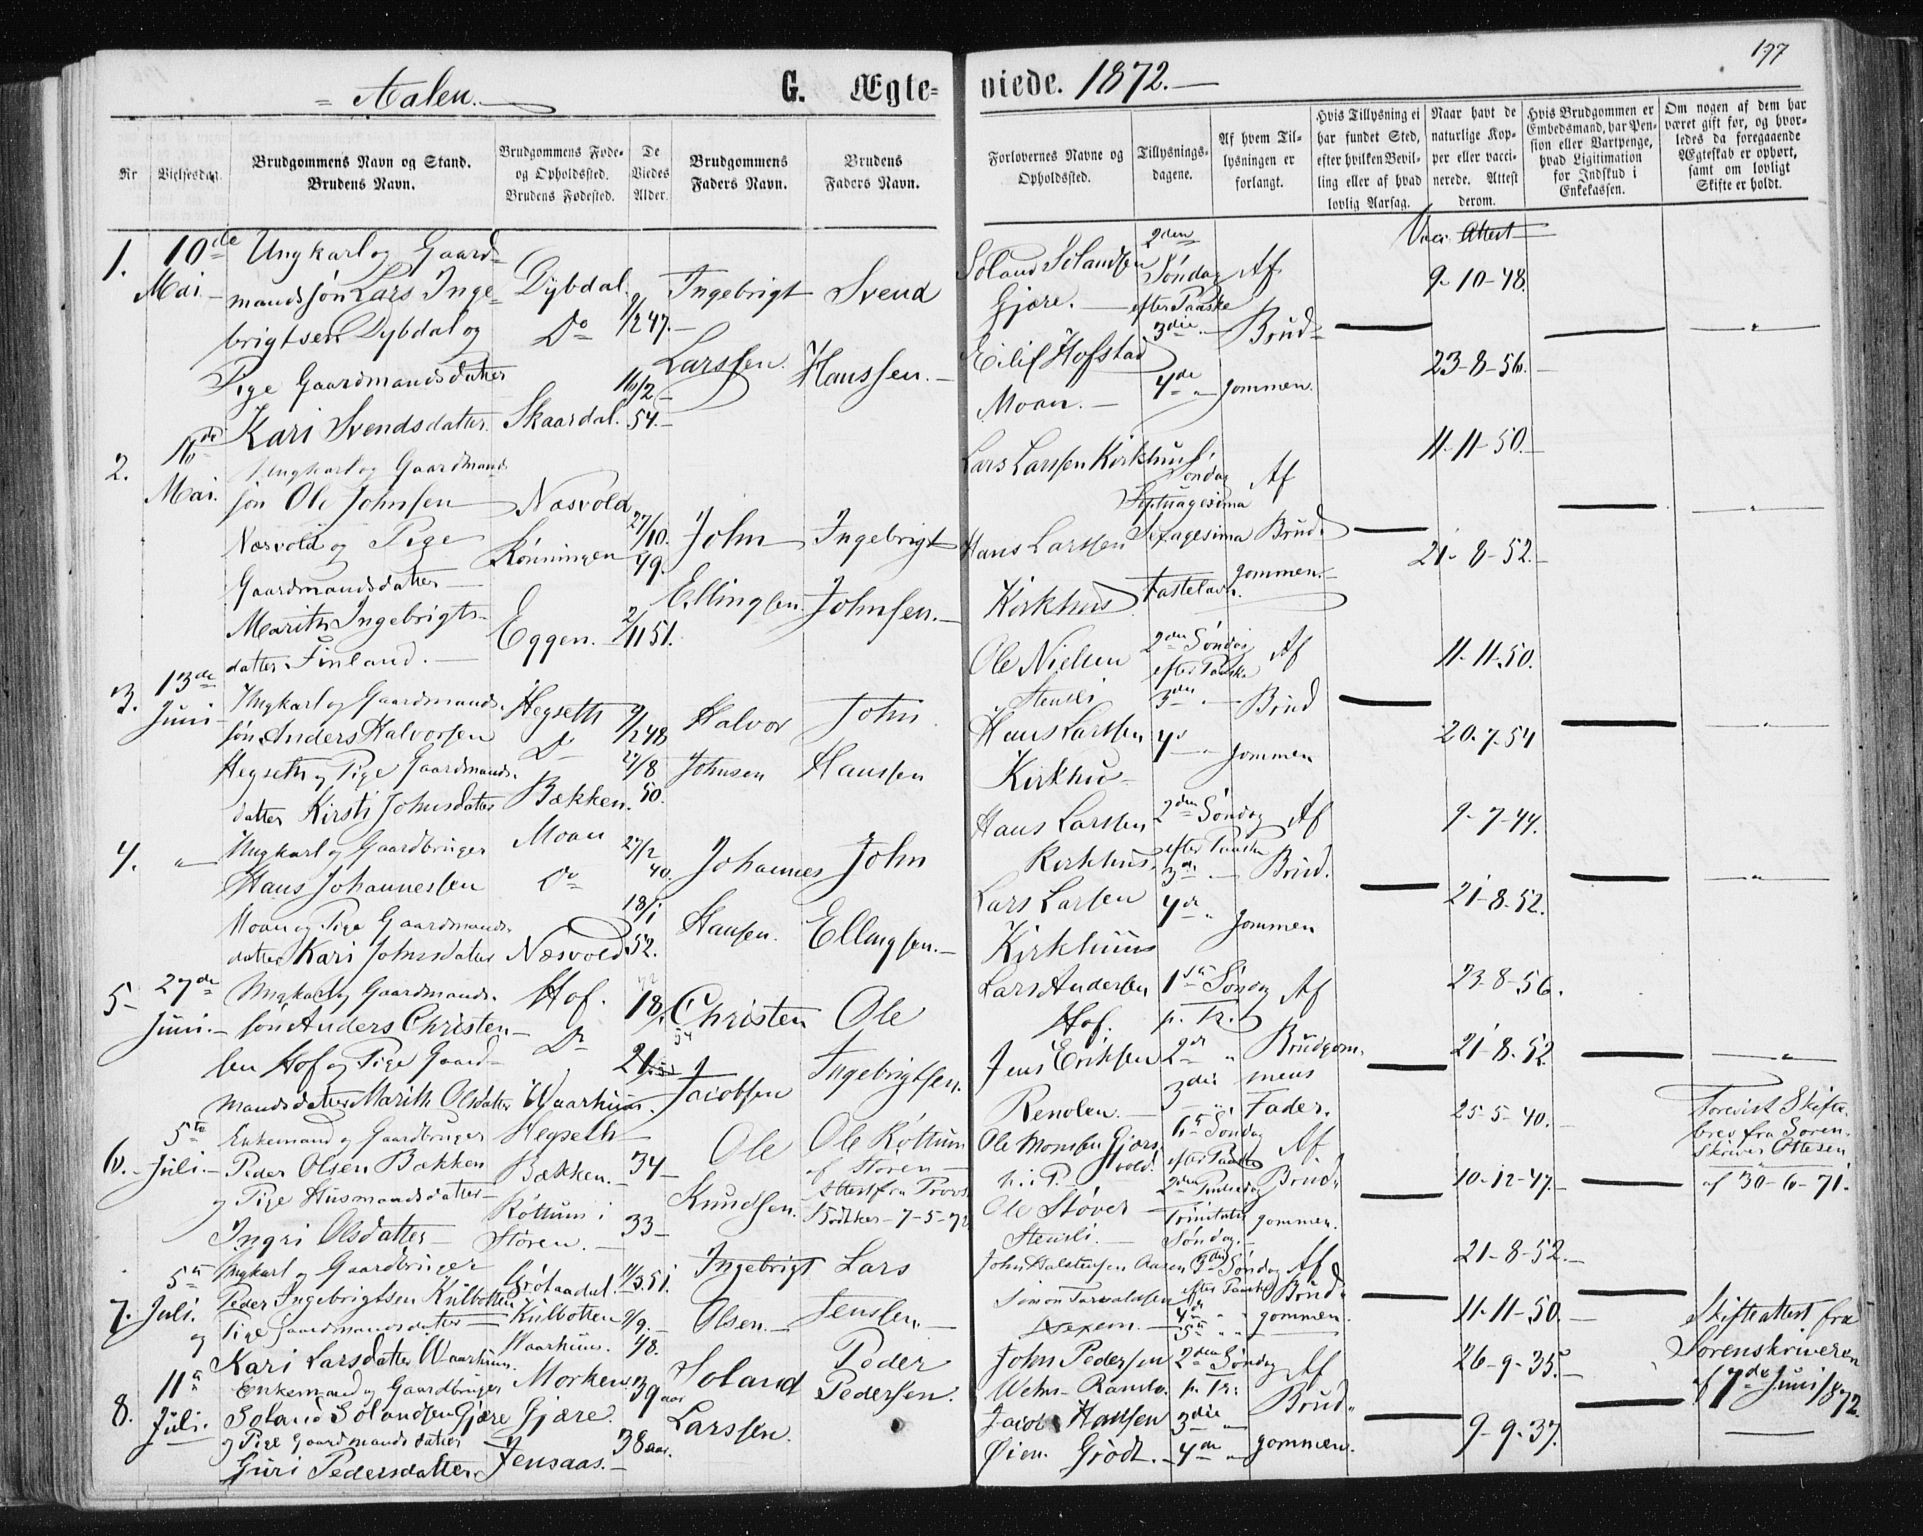 197
Aalen.
G. Ægte=
viede. 1872.
Nr
Vielsesdag.
Brudgommens Navn og Stand.
Brudens Navn.
Brudgommens Føde-
og Opholdssted.
Brudens Fødested.
De
Viedes
Alder.
Brudgommens
Faders Navn.
Brudens
Faders Navn.
Forlovernes Navne og
Opholdssted.
Tillysnings-
dagene.
Af hvem Til-
lysningen er
forlangt.
Hvis Tillysning ei
har fundet Sted,
efter hvilken Bevil-
ling eller af hvad
lovlig Aarsag.
Naar havt de
naturlige Kop-
per eller vacci-
nerede. Attest
derom.
Hvis Brudgommen er
Embedsmand, har Pen-
sion eller Vartpenge,
hvad Ligitimation
for Indskud i
Enkekassen.
Om nogen af dem har
været gift før, og hvor-
ledes da foregaaende
Ægteskab er ophørt,
samt om lovligt
Skifte er holdt.
1.
10de
Mai
Ungkarl og Gaard-
mandssøn Lars Inge-
brigtsen Dybdal og
Pige Gaardmandsdatter
Kari Svendsdatter
Dybdal
Do
Skaardal.
9/2 47.
16/2
54.
Ingebrigt
Larssen.
Svend
Hanssen.
Soland Solandsen
Gjære.
Eilif Hofstad
Moan.
2den
Søndag
efter Paaske
3die "
4de "
Af
Brud-
gommen.
Vacc. Attest
9-10-48.
23-8-56.
"
2.
16de
Mai.
Ungkarl og Gaardmand
søn Ole Johnsen
Næsvold og Pige
Gaardmandsdatter
Marith Ingebrigts-
datter Finland.
Næsvold
Rønningen
Eggen.
27/10.
49.
2/11 51.
John
Ellingsen
Ingebrigt
Johnsen.
Lars Larssen Kirkhus
Hans Larssen
Kirkhus
Søndag
Septuagesima
Sexagesima
Fastelavn.
Af
Brud-
gommen.
11-11-50.
21-8-52.
"
3.
13de
Juni
Ungkarl og Gaardmands-
søn Anders Halvorsen
Hegseth og Pige Gaardmands-
datter Kirsti Johnsdatter
Hegseth
Do
Bækken.
9/2 48
27/8
50.
Halvor
Johnsen
John
Hanssen
Ole Nielsen
Stensli
Hans Larssen
Kirkhus
2den Søndag
efter Paaske
3die "
4de "
Af
Brud
gommen
11-11-50.
20-7-54
"
4.
"
Ungkarl og Gaardbruger
Hans Johannessen
Moan og Pige Gaardmands-
datter Kari Johnsdatter
Moan
Do
Næsvold
27/2
40.
18/1
52.
Johannes
Hansen.
John
Ellingsen.
Hans Larssen
Kirkhus.
Lars Larsen
Kirkhuus
2den Søndag
efter Paaske
3die "
4de "
Af
Brud-
gommen
9-7-44.
21-8-52.
"
5
27de
Juni.
Ungkarl og Gaardmands-
søn Anders Christen-
sen Hof og Pige Gaard-
mandsdatter Marith Olsdatter
Hof.
Do
Waarhuus.
Christen
Jacobsen
Ole
Ingebrigtsen.
Lars Andersen
Hof.
Jens Eriksen
Renolen.
1ste Søndag
p. Tr.
2den "
3die "
Af
Brudgom-
mens
Fader.
23-8-56.
21-8-52
"
6.
5te
Juli.
Enkemand og Gaardbruger
Peder Olsen Bækken
og Pige Husmandsdatter
Ingri Olsdatter
Hegseth
Bækken.
Røttum i
Støren.
34
33
Ole
Knudsen.
Ole Røttum
af Støren
Attest fra Provst
Bødtker 7-5-72
Ole Monsen Gjørs
vold.
Ole Støver
Stensli.
6te Søndag
efter Paaske
2den Pintsedag
Trinitatis
Søndag.
Af
Brud-
gommen.
25-5-40.
10-12-47.
Forevist Skifte
brev fra Soren-
skriver Ottesen
af 30-6-71.
7.
5te
Juli.
Ungkarl og Gaardbruger
Peder Ingebrigtsen Külbotten
og Pige Gaardmandsdatter
Kari Larsdatter Waarhuus.
Grötaadal.
Külbotten
Waarhuus.
11/3 51.
9/9.
48.
Ingebrigt
Olsen.
Lars
Jenssen.
John Halstensen Aasen
Simon Torvaldsen
3die Søndag
efter Paaske
4de "
5te "
Af
Brud-
gommen.
21-8-52.
11-11-50.
8.
11te
Juli.
Enkemand og Gaardbruger
Soland Solandsen Gjære
og Pige Gaardmandsdatter
Guri Pedersdatter
Morken
Gjære.
Jensaas.
39 aar
38 aar.
Soland
Larssen.
Peder
Pedersen.
John Pedersen
Jacob Hansen
Øien Grödt.
2den Søndag
p. Tr.
3die "
4de "
Af
Brud-
gommen.
26-9-35.
9-9-37.
Skifteattest fra
Sorenskriveren
af 7de Juni 1872.